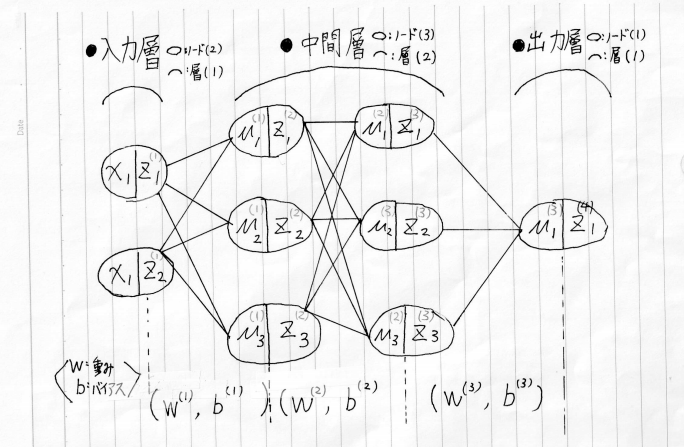 Date
●入力層 ○:ノード(2)
⌒:層(1)
●中間層 ○:ノード(3)
⌒:層(2)
●出力層 ○:ノード(1)
⌒:層(1)
x₁|z₁⁽¹⁾
x₁|z₂⁽¹⁾
u₁⁽¹⁾|z₁⁽²⁾
u₂⁽¹⁾|z₂⁽²⁾
u₃⁽¹⁾|z₃⁽²⁾
u₁⁽²⁾|z₁⁽³⁾
u₂⁽³⁾|z₂⁽³⁾
u₃⁽²⁾|z₃⁽³⁾
u₁⁽³⁾|z₁⁽⁴⁾
W:重み
b:バイアス
(W⁽¹⁾, b⁽¹⁾)
(W⁽²⁾, b⁽²⁾)
(W⁽³⁾, b⁽³⁾)